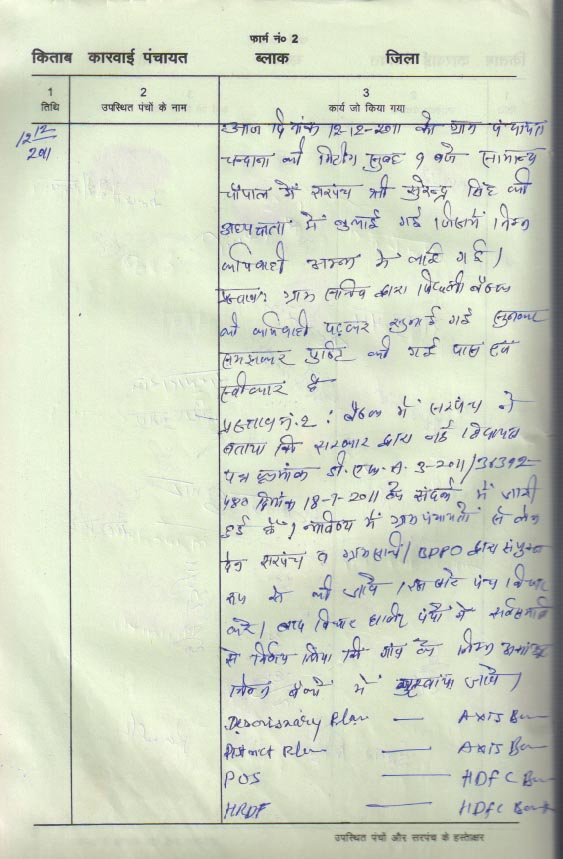 फार्म नं० 2
किताब कारवाई पंचायत ब्लाक जिला
1 2 3
तिथि उपस्थित पंचों के नाम कार्य जो किया गया
12/12/2011
आज दिनांक 12-12-2011 को ग्राम पंचायत
चन्दाना की मिटींग सुबह 9 बजे सामान्य
चौपाल में सरपंच श्री सुरेन्द्र सिंह की
अध्यक्षता में बुलाई गई जिसमें निम्न
कार्यवाही अमल में लाई गई।
प्रस्ताव 1: ग्राम सचिव द्वारा पिछली बैठक
की कार्यवाही पढ़कर सुनाई गई सुनकर
समझकर पुष्टि की गई पास एवं
स्वीकार है
प्रस्ताव नं. 2: बैठक में सरपंच ने
बताया कि सरकार द्वारा नई
पत्र क्रमांक डी.एस.ए. 3-2011/36392
480 दिनांक 18-7-2011 के संदर्भ में जारी
हुई है। भविष्य में ग्राम पंचायतों से लेन
देन सरपंच व ग्राम सचिव/BDPO द्वारा संयुक्त
रूप से की जावे। इस बारे पंच विचार
करे। बाद विचार हाजिर पंचों ने सर्वसम्मति
से निर्णय लिया कि गांव के निम्न
निम्न बैंकों में खुलवाया जावे।
Descrisnary Plan — Axis Ban
District Plan — Axis Ban
POS — HDFC Ban
HRDF — HDFC Bank
उपस्थित पंचों और सरपंच के हस्ताक्षर